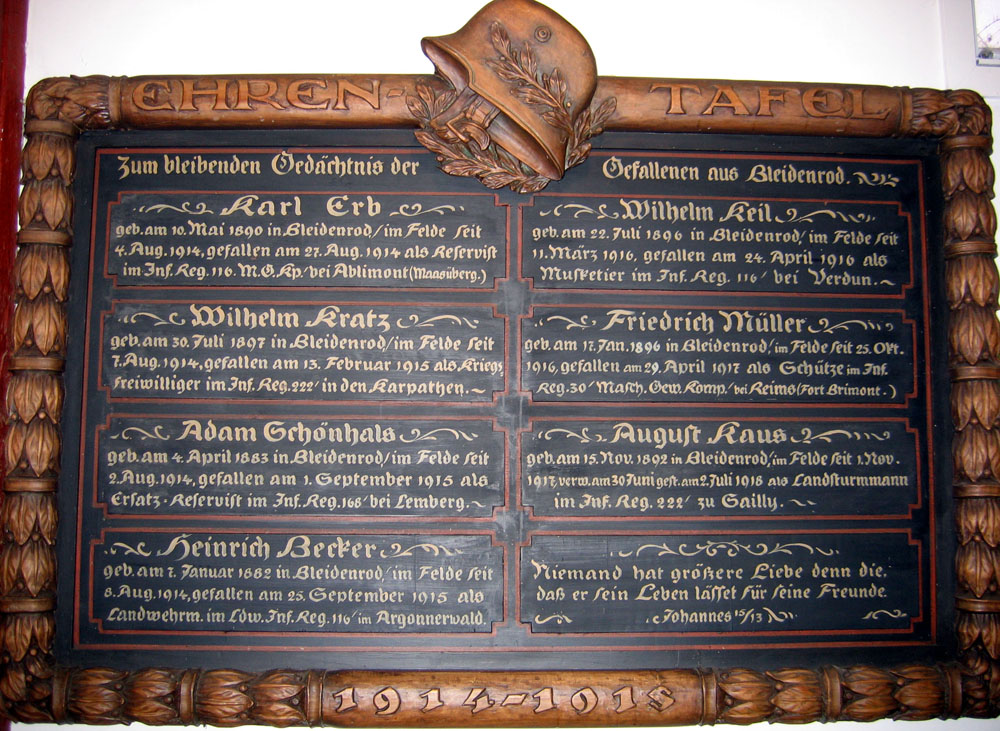 EHREN-TAFEL
Zum bleibenden Gedächtnis der Gefallenen aus Bleidenrod.
Karl Erb
geb. am 10. Mai 1890 in Bleidenrod/im Felde seit
4. Aug. 1914, gefallen am 27. Aug. 1914 als Reservist
im Inf. Reg. 116. M.G.Kp/bei Ablimont (Maasüberg.)
Wilhelm Kratz
geb. am 30. Juli 1897 in Bleidenrod/im Felde seit
7. Aug. 1914, gefallen am 13. Februar 1915 als Kriegs-
freiwilliger im Inf. Reg. 222/ in den Karpathen.
Adam Schönhals
geb. am 4. April 1883 in Bleidenrod/im Felde seit
2. Aug. 1914, gefallen am 1. September 1915 als
Ersatz-Reservist im Inf. Reg. 168/ bei Lemberg.
Heinrich Becker
geb. am 7. Januar 1882 in Bleidenrod/im Felde seit
8. Aug. 1914, gefallen am 25. September 1915 als
Landwehrm. im Ldw. Inf. Reg. 116/ im Argonnerwald.
Wilhelm Keil
geb. am 22. Juli 1896 in Bleidenrod/im Felde seit
11. März 1916, gefallen am 24. April 1916 als
Musketier im Inf. Reg. 116/ bei Verdun.
Friedrich Müller
geb. am 17. Jan. 1896 in Bleidenrod/im Felde seit 25. Okt.
1916, gefallen am 29. April 1917 als Schütze im Inf.
Reg. 30/ Masch. Gew. Komp./ bei Reims (Fort Brimont.)
August Kaus
geb. am 15. Nov. 1892 in Bleidenrod/im Felde seit 1. Nov.
1917, verw. am 30 Juni gest. am 2. Juli 1918 als Landsturmmann
im Inf. Reg. 222/ zu Sailly.
Niemand hat größere Liebe denn die,
daß er sein Leben lässet für seine Freunde.
Johannes 15/13
1914-1918